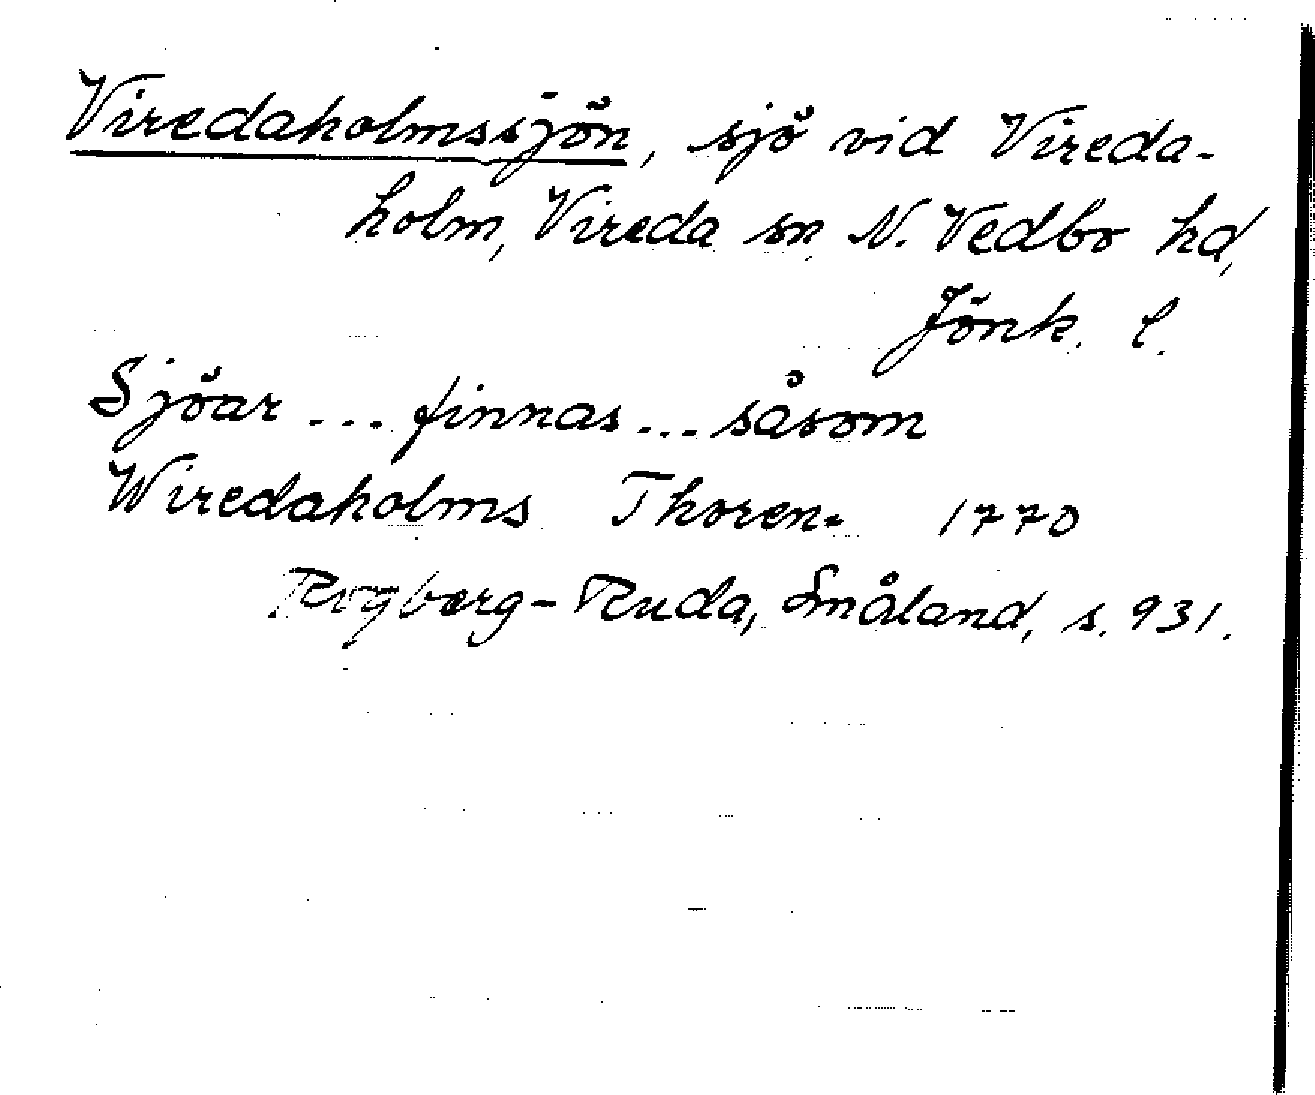 Viredaholmssjön, sjö vid Vireda-
holm, Vireda sn N. Vedbo hd,
Jönk. l.
Sjöar ... finnas ... såsom
Wiredaholms Thoren. 1770
Rogberg-Ruda, Småland, s. 931.